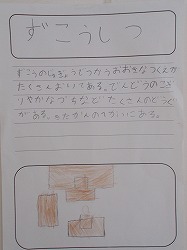 ずこうしつ
ずこうのじゅぎょうしつからおおきなつくえが
たくさんおいてある。でんどうのこぎ
りやかなづちなどたくさんのどうぐ
がある。きたかんの1かいにある。